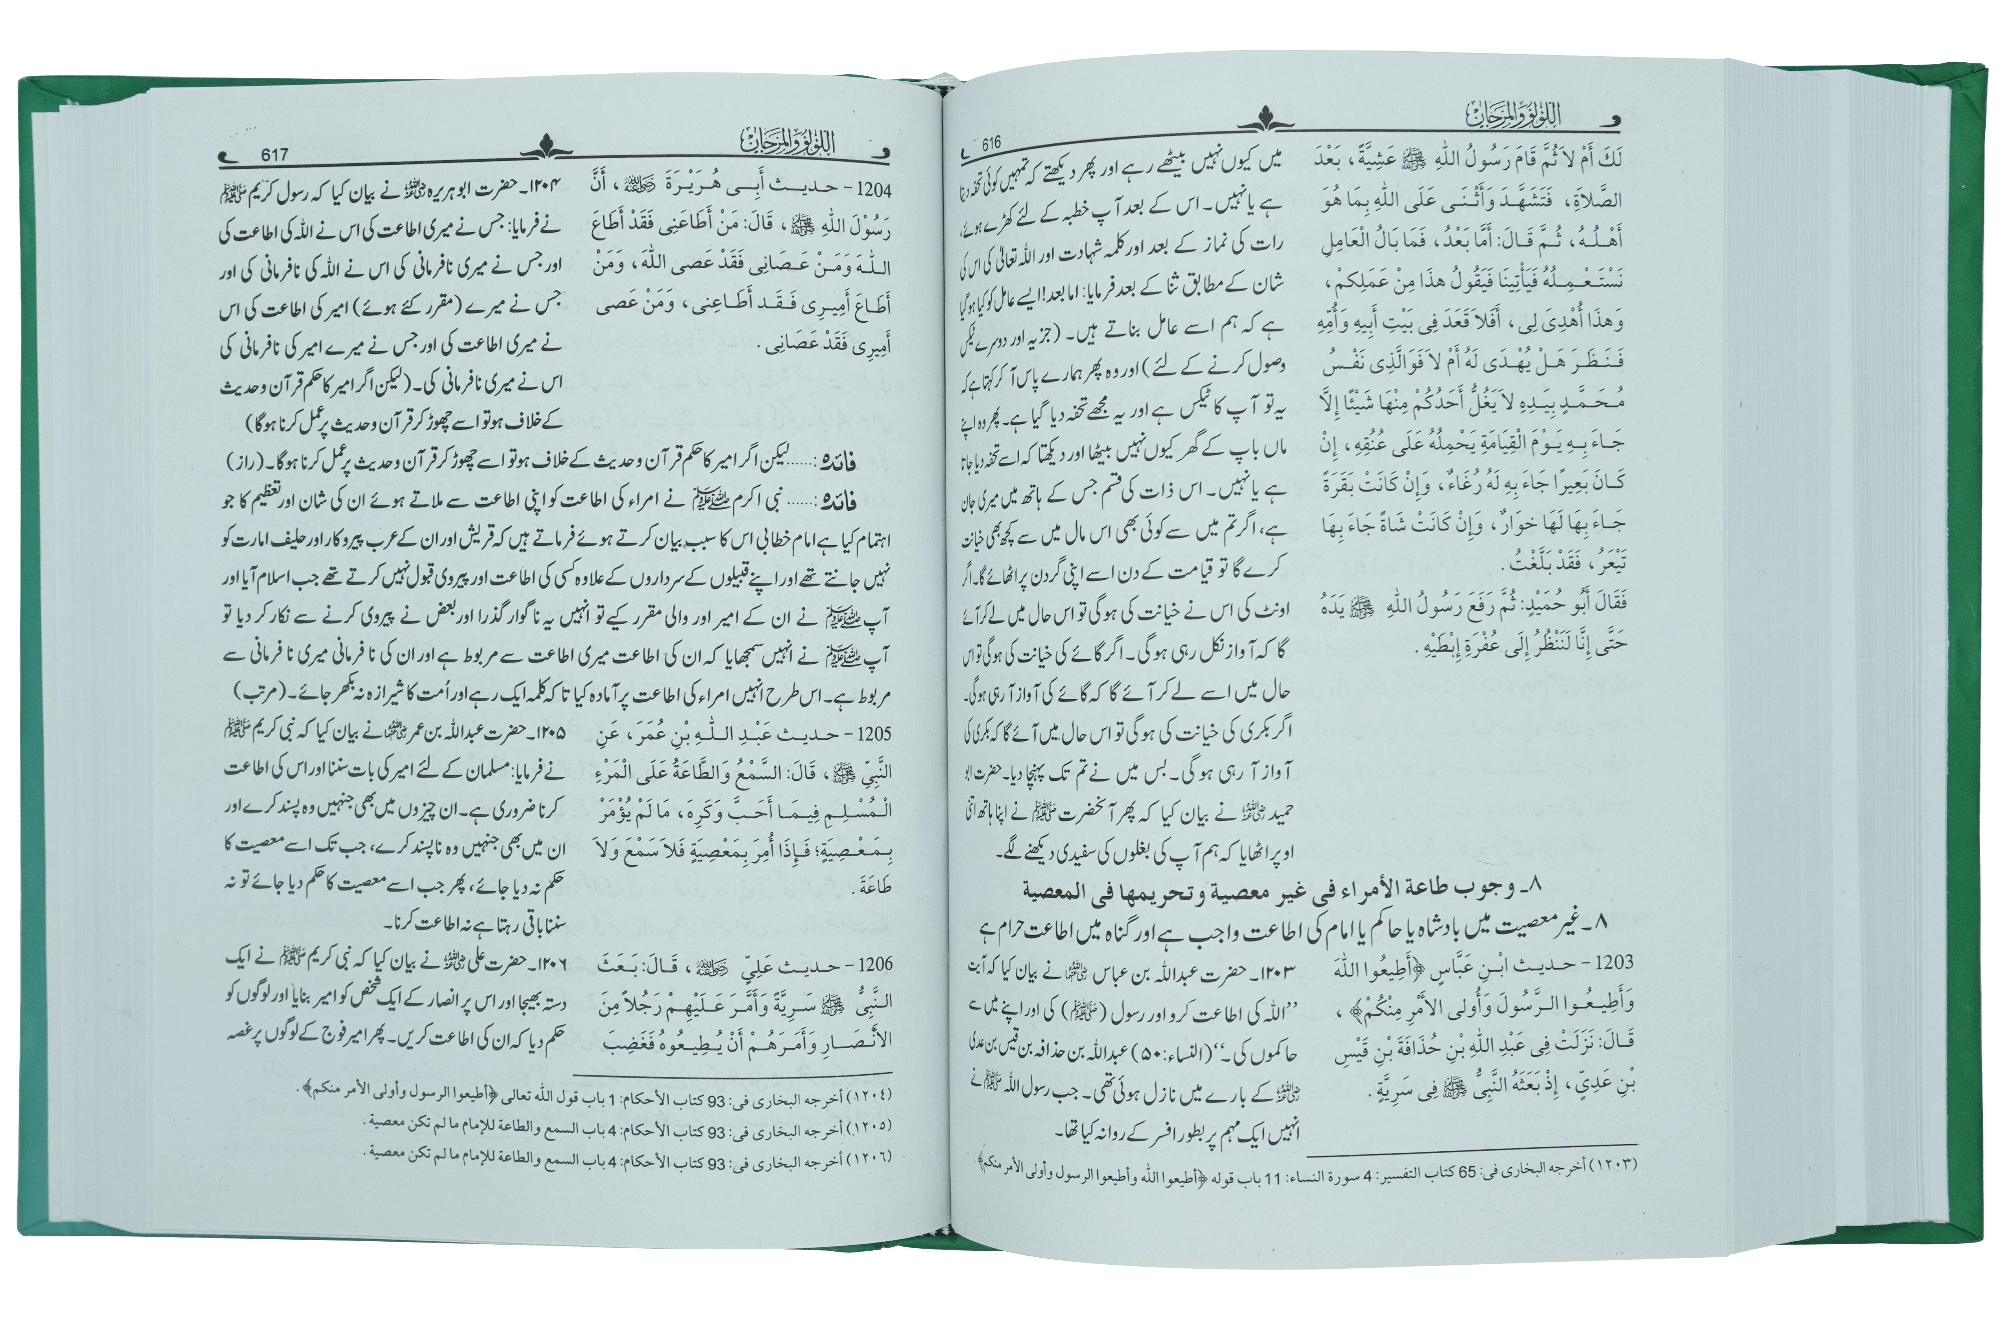 اللؤلؤ والمرجان
616
لَكَ أَمْ لاَ ثُمَّ قَامَ رَسُولُ اللهِ ﷺ عَشِيَّةً، بَعْدَ
الصَّلاَةِ، فَتَشَهَّدَ وَأَثْنَى عَلَى اللهِ بِمَا هُوَ
أَهْلُهُ، ثُمَّ قَالَ: أَمَّا بَعْدُ، فَمَا بَالُ الْعَامِلِ
نَسْتَعْمِلُهُ فَيَأْتِينَا فَيَقُولُ هذَا مِنْ عَمَلِكمْ،
وَهذَا أُهْدِىَ لِى، أَفَلاَ قَعَدَ فِى بَيْتِ أَبِيهِ وَأُمِّهِ
فَنَظَرَ هَلْ يُهْدَى لَهُ أَمْ لاَ فَوَالَّذِى نَفْسُ
مُحَمَّدٍ بِيَدِهِ لاَ يَغُلُّ أَحَدُكُمْ مِنْهَا شَيْئًا إِلاَّ
جَاءَ بِهِ يَوْمَ الْقِيَامَةِ يَحْمِلُهُ عَلَى عُنُقِهِ، إِنْ
كَانَ بَعِيرًا جَاءَ بِهِ لَهُ رُغَاءٌ، وَإِنْ كَانَتْ بَقَرَةً
جَاءَ بِهَا لَهَا خوَارٌ، وَإِنْ كَانَتْ شَاةً جَاءَ بِهَا
تَيْعَرُ، فَقَدْ بَلَّغْتُ.
فَقَالَ أَبُو حُمَيْدٍ: ثُمَّ رَفَعَ رَسُولُ اللهِ ﷺ يَدَهُ
حَتَّى إِنَّا لَنَنْظُرُ إِلَى عُفْرَةِ إِبْطَيْهِ.
میں کیوں نہیں بیٹھے رہے اور پھر دیکھتے کہ تمہیں کوئی تحفہ دیتا
ہے یا نہیں۔ اس کے بعد آپ خطبہ کے لئے کھڑے ہوئے،
رات کی نماز کے بعد اور کلمہ شہادت اور اللہ تعالیٰ کی اس کی
شان کے مطابق ثنا کے بعد فرمایا: اما بعد! ایسے عامل کو کیا ہو گیا
ہے کہ ہم اسے عامل بناتے ہیں۔ (جزیہ اور دوسرے ٹیکس
وصول کرنے کے لئے) اور وہ پھر ہمارے پاس آ کر کہتا ہے کہ
یہ تو آپ کا ٹیکس ہے اور یہ مجھے تحفہ دیا گیا ہے۔ پھر وہ اپنے
ماں باپ کے گھر کیوں نہیں بیٹھا اور دیکھتا کہ اسے تحفہ دیا جاتا
ہے یا نہیں۔ اس ذات کی قسم جس کے ہاتھ میں میری جان
ہے، اگر تم میں سے کوئی بھی اس مال میں سے کچھ بھی خیانت
کرے گا تو قیامت کے دن اسے اپنی گردن پر اٹھائے گا۔ اگر
اونٹ کی اس نے خیانت کی ہو گی تو اس حال میں لے کر آئے
گا کہ آواز نکل رہی ہو گی۔ اگر گائے کی خیانت کی ہو گی تو اس
حال میں اسے لے کر آئے گا کہ گائے کی آواز آ رہی ہو گی۔
اگر بکری کی خیانت کی ہو گی تو اس حال میں آئے گا کہ بکری کی
آواز آ رہی ہو گی۔ بس میں نے تم تک پہنچا دیا۔ حضرت ابو
حمید رضی اللہ عنہ نے بیان کیا کہ پھر آنحضرت ﷺ نے اپنا ہاتھ اتنی
اوپر اٹھایا کہ ہم آپ کی بغلوں کی سفیدی دیکھنے لگے۔
۸۔ وجوب طاعة الأمراء فى غير معصية وتحريمها فى المعصية
۸۔ غیر معصیت میں بادشاہ یا حاکم یا امام کی اطاعت واجب ہے اور گناہ میں اطاعت حرام ہے
1203 - حديث ابْنِ عَبَّاسٍ ﴿أَطِيعُوا اللهَ
وَأَطِيعُوا الرَّسُولَ وَأُولى الأَمْرِ مِنْكُمْ﴾،
قَالَ: نَزَلَتْ فِى عَبْدِ اللهِ بْنِ حُذَافَةَ بْنِ قَيْسِ
بْنِ عَدِيٍّ، إِذْ بَعَثَهُ النَّبِىُّ ﷺ فِى سَرِيَّةٍ.
۱۲۰۳۔ حضرت عبداللہ بن عباس رضی اللہ عنہما نے بیان کیا کہ آیت
’’اللہ کی اطاعت کرو اور رسول (ﷺ) کی اور اپنے میں سے
حاکموں کی۔‘‘ (النساء: ۵۰) عبداللہ بن حذافہ بن قیس بن عدی
رضی اللہ عنہ کے بارے میں نازل ہوئی تھی۔ جب رسول اللہ ﷺ نے
انہیں ایک مہم پر بطور افسر کے روانہ کیا تھا۔
(۱۲۰۳) أخرجه البخارى فى: 65 كتاب التفسير: 4 سورة النساء: 11 باب قوله ﴿أطيعوا الله وأطيعوا الرسول وأولى الأمر منكم﴾
اللؤلؤ والمرجان
617
1204 - حديث أَبِى هُرَيْرَةَ رضی اللہ عنہ، أَنَّ
رَسُوْلَ اللهِ ﷺ، قَالَ: مَنْ أَطَاعَنِى فَقَدْ أَطَاعَ
اللهَ وَمَنْ عَصَانِى فَقَدْ عَصى اللهَ، وَمَنْ
أَطَاعَ أَمِيرِى فَقَد أَطَاعِنى، وَمَنْ عَصى
أَمِيرِى فَقَدْ عَصَانِى.
۱۲۰۴۔ حضرت ابو ہریرہ رضی اللہ عنہ نے بیان کیا کہ رسول کریم ﷺ
نے فرمایا: جس نے میری اطاعت کی اس نے اللہ کی اطاعت کی
اور جس نے میری نافرمانی کی اس نے اللہ کی نافرمانی کی اور
جس نے میرے (مقرر کئے ہوئے) امیر کی اطاعت کی اس
نے میری اطاعت کی اور جس نے میرے امیر کی نافرمانی کی
اس نے میری نافرمانی کی۔ (لیکن اگر امیر کا حکم قرآن و حدیث
کے خلاف ہو تو اسے چھوڑ کر قرآن و حدیث پر عمل کرنا ہوگا)
فائدہ:...... لیکن اگر امیر کا حکم قرآن و حدیث کے خلاف ہو تو اسے چھوڑ کر قرآن و حدیث پر عمل کرنا ہوگا۔ (راز)
فائدہ:...... نبی اکرم ﷺ نے امراء کی اطاعت کو اپنی اطاعت سے ملاتے ہوئے ان کی شان اور تعظیم کا جو
اہتمام کیا ہے امام خطابی اس کا سبب بیان کرتے ہوئے فرماتے ہیں کہ قریش اور ان کے عرب پیروکار اور حلیف امارت کو
نہیں جانتے تھے اور اپنے قبیلوں کے سرداروں کے علاوہ کسی کی اطاعت اور پیروی قبول نہیں کرتے تھے جب اسلام آیا اور
آپ ﷺ نے ان کے امیر اور والی مقرر کیے تو انہیں یہ ناگوار گذرا اور بعض نے پیروی کرنے سے نکار کر دیا تو
آپ ﷺ نے انہیں سمجھایا کہ ان کی اطاعت میری اطاعت سے مربوط ہے اور ان کی نافرمانی میری نافرمانی سے
مربوط ہے۔ اس طرح انہیں امراء کی اطاعت پر آمادہ کیا تاکہ کلمہ ایک رہے اور اُمت کا شیرازہ نہ بکھر جائے۔ (مرتب)
1205 - حديث عَبْدِ اللهِ بْنِ عُمَرَ، عَنِ
النَّبِىِّ ﷺ، قَالَ: السَّمْعُ وَالطَّاعَةُ عَلَى الْمَرْءِ
الْمُسْلِمِ فِيمَا أَحَبَّ وَكَرِهَ، مَا لَمْ يُؤْمَرْ
بِمَعْصِيَةٍ؛ فَإِذَا أُمِرَ بِمَعْصِيَةٍ فَلاَ سَمْعَ وَلاَ
طَاعَةَ.
۱۲۰۵۔ حضرت عبداللہ بن عمر رضی اللہ عنہما نے بیان کیا کہ نبی کریم ﷺ
نے فرمایا: مسلمان کے لئے امیر کی بات سننا اور اس کی اطاعت
کرنا ضروری ہے۔ ان چیزوں میں بھی جنہیں وہ پسند کرے اور
ان میں بھی جنہیں وہ ناپسند کرے، جب تک اسے معصیت کا
حکم نہ دیا جائے، پھر جب اسے معصیت کا حکم دیا جائے تو نہ
سننا باقی رہتا ہے نہ اطاعت کرنا۔
1206 - حديث عَلِيٍّ رضی اللہ عنہ، قَالَ: بَعَثَ
النَّبِىُّ ﷺ سَرِيَّةً وَأَمَّرَ عَلَيْهِمْ رَجُلاً مِنَ
الأَنْصَارِ وَأَمَرَهُمْ أَنْ يُطِيعُوهُ فَغَضِبَ
۱۲۰۶۔ حضرت علی رضی اللہ عنہ نے بیان کیا کہ نبی کریم ﷺ نے ایک
دستہ بھیجا اور اس پر انصار کے ایک شخص کو امیر بنایا اور لوگوں کو
حکم دیا کہ ان کی اطاعت کریں۔ پھر امیر فوج کے لوگوں پر غصہ
(١٢٠٤) أخرجه البخارى فى: 93 كتاب الأحكام: 1 باب قول الله تعالى ﴿أطيعوا الرسول وأولى الأمر منكم﴾.
(١٢٠٥) أخرجه البخارى فى: 93 كتاب الأحكام: 4 باب السمع والطاعة للإمام ما لم تكن معصية.
(١٢٠٦) أخرجه البخارى فى: 93 كتاب الأحكام: 4 باب السمع والطاعة للإمام ما لم تكن معصية.